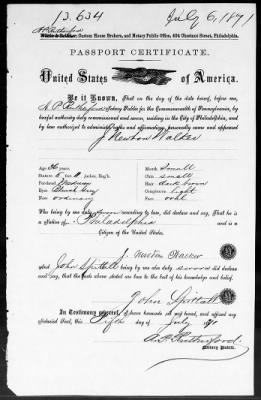 13.634
July 6, 1871
Custom House Brokers, and Notary Public Office, 404 Chestnut Street, Philadelphia.
PASSPORT CERTIFICATE.
United States of America.
Be it Known, That on the day of the date hereof, before me,
Notary Public for the Commonwealth of Pennsylvania, by
lawful authority duly commissioned and sworn, residing in the City of Philadelphia, and
by law authorized to administer oaths and affirmations, personally came and appeared
J Newton Walker
Age 36 years.
Stature 5 feet inches, Eng'h.
Forehead Medium
Eyes
Nose ordinary
Mouth Small
Chin small
Hair dark brown
Complexion light
Face oval
Who being by me duly sworn according to law, did declare and say, That he is
a native of Philadelphia and is a
Citizen of the United States.
J. Newton Walker
and John Spittall being by me duly sworn did declare
and say, that the facts above stated are to the best of his knowledge and belief,
John Spittall
In Testimony whereof, I have hereunto set my hand, and affixed my
Notarial Seal, this Fifth day of July
Notary Public.